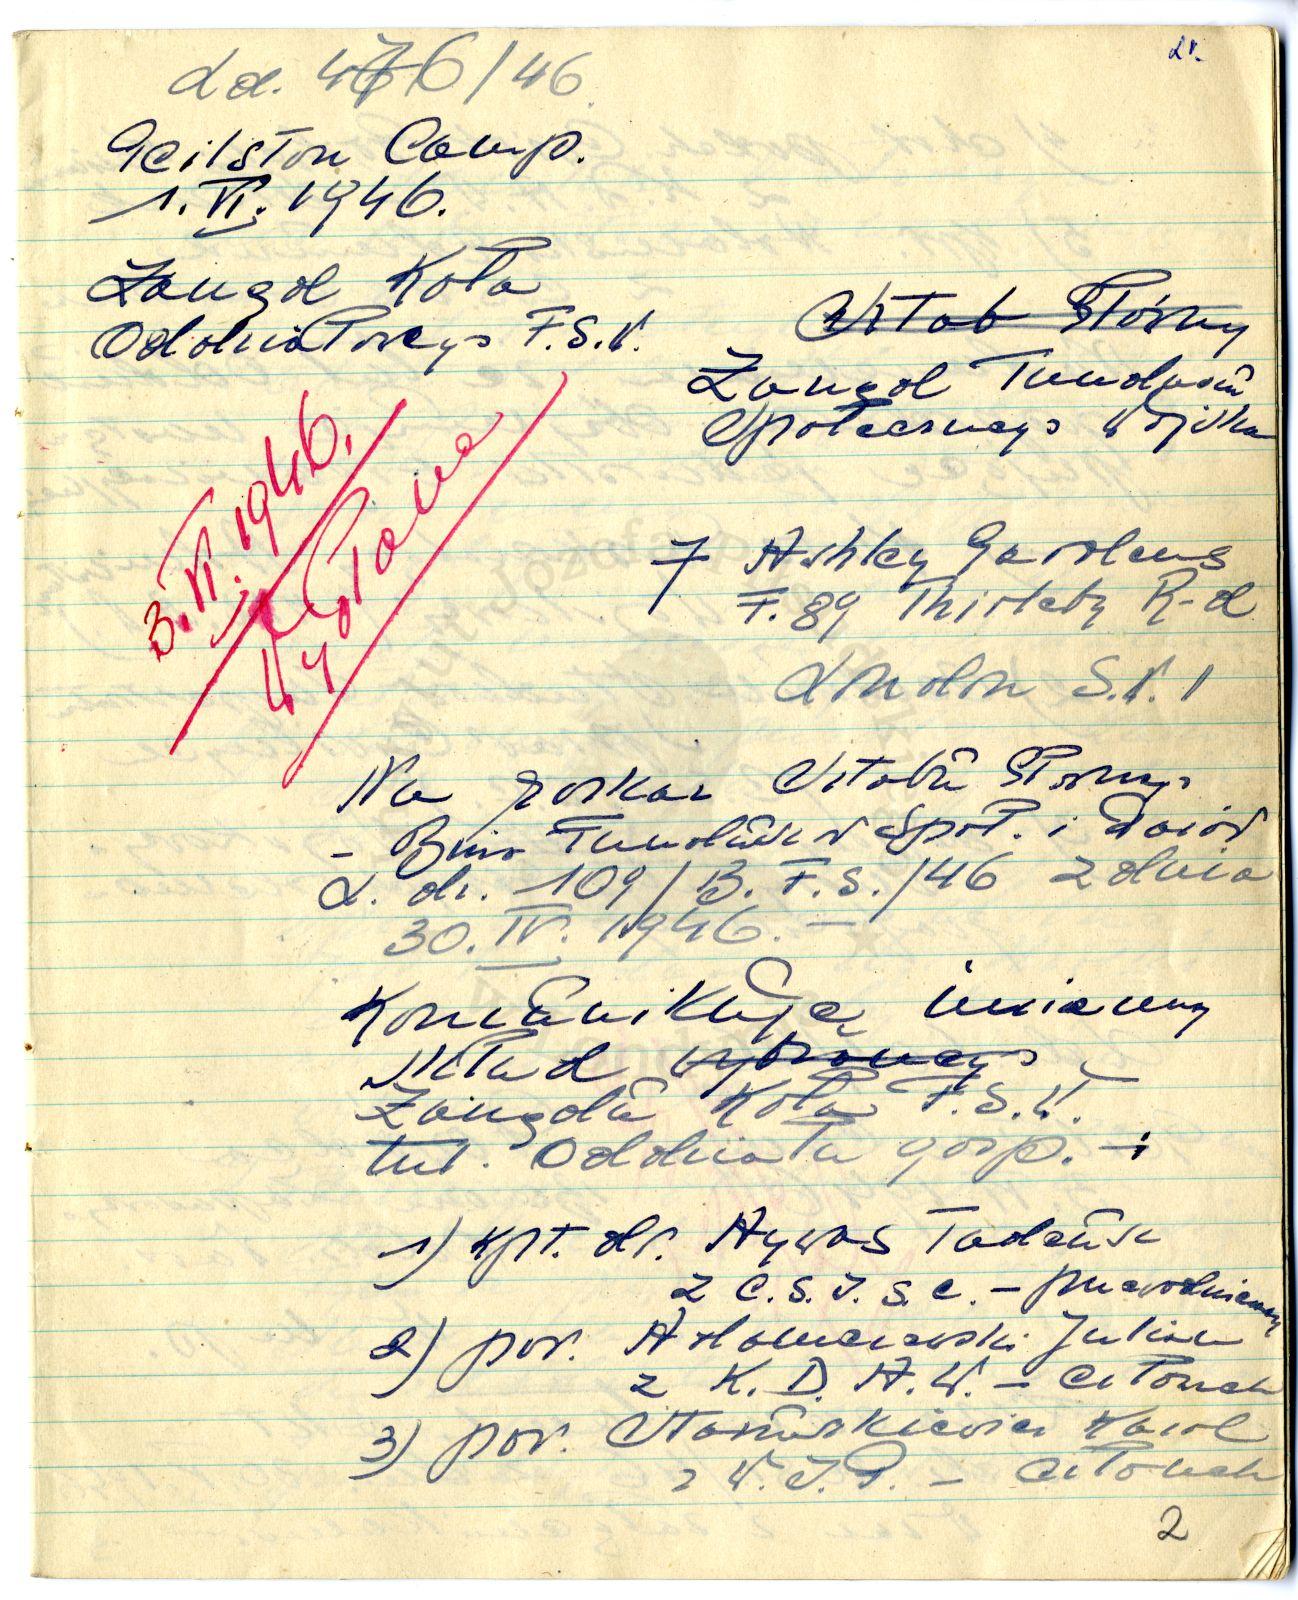 2v.
Ld. 476/46.
Geilston Camp.
1. VI. 1946.
Zarząd Koła
Oddziałowego F.S.W.
Sztab Główny
Zarząd Funduszu
Społecznego Wojska
3. VI. 1946.
Wysłano
7 Ashley Gardens
F. 89 Thirleby R-d
London S.W. 1
Na rozkaz Sztabu Głównego
- Biuro Funduszów Społ. i
L. dz. 109/B.F.S./46 z dnia
30. IV. 1946. -
Komunikuję imienny
skład wybranego
Zarządu Koła F.S.W.
tut. Oddziału gosp. -
1) kpt. dr. Hywas Tadeusz
z C.S.J.S.C. - przewodniczący
2) por. Adamczewski Julian
z K.D.H.W. - członek
3) por. Staniszkiewicz Karol
z W.J.G. - członek
2